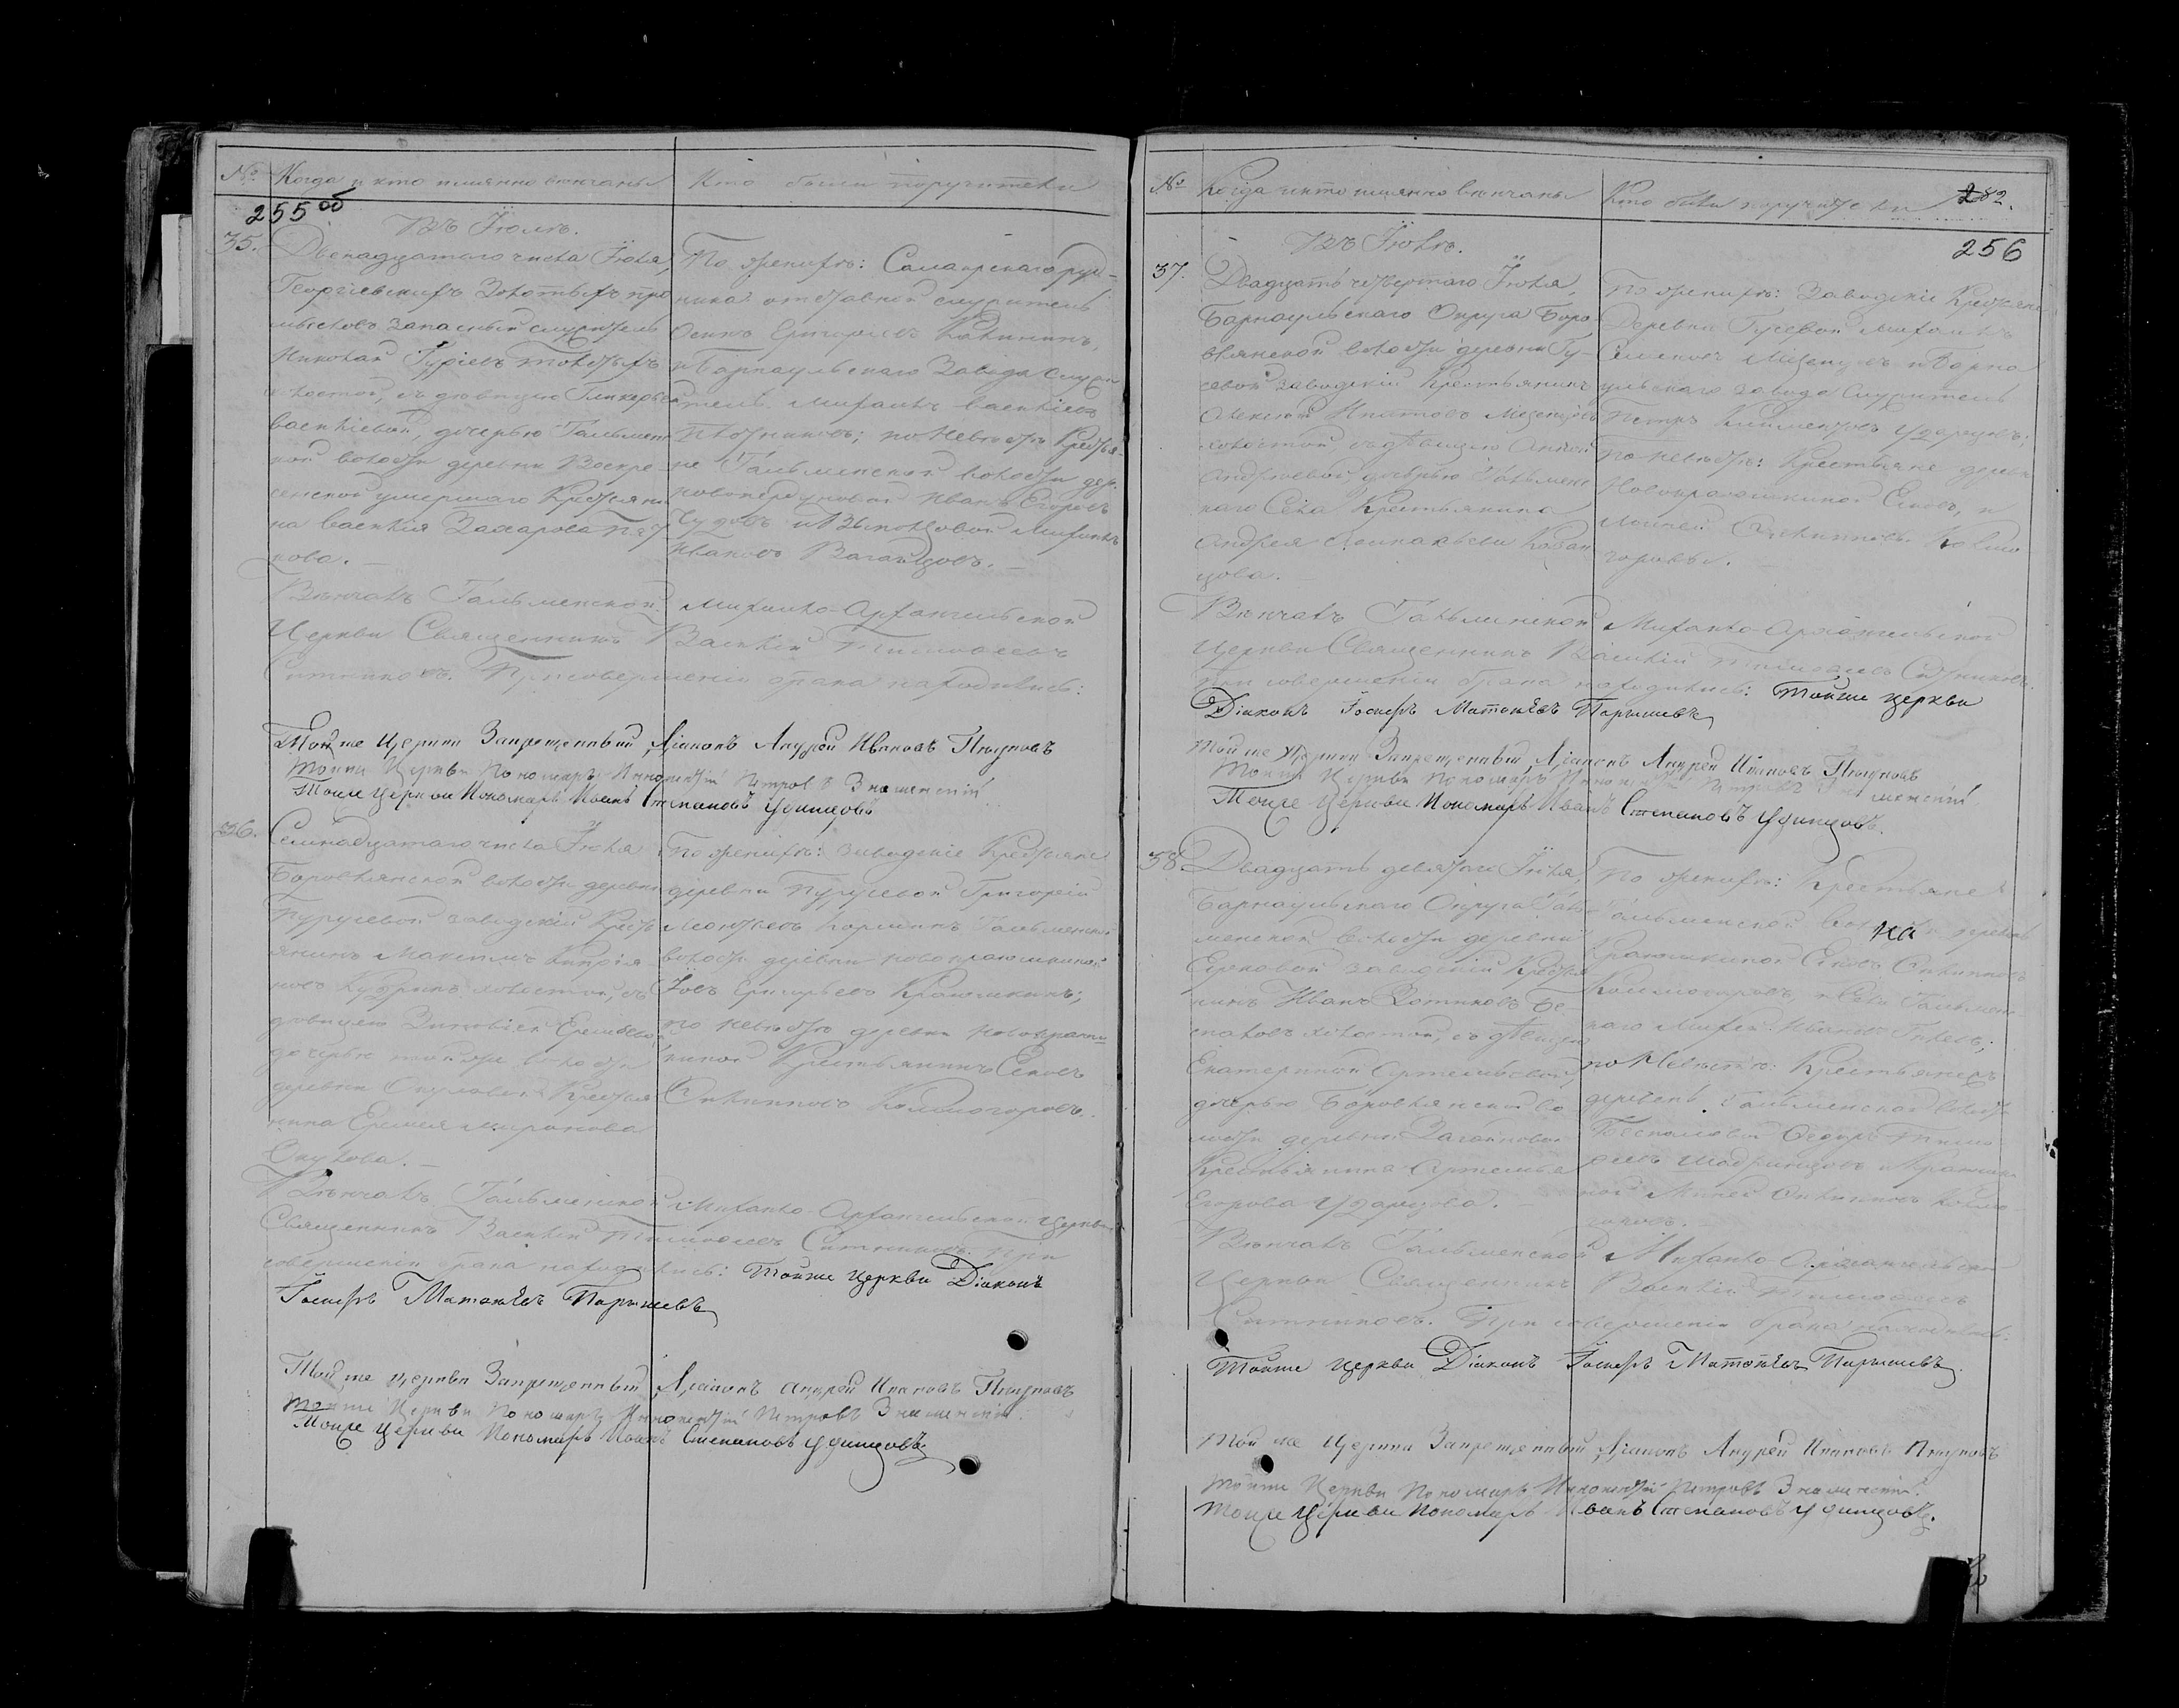 № Когда и кто имянно венчаны
Кто были поручители
255 об
Въ Іюлѣ.
35. Двенадцатаго числа Іюля,
Георгіевскихъ Золотыхъ про
мысловъ запасный служитель
Николай Гуріевъ
холостой, съ девицею Гликерьей
Васильевой, дочерью Тальмен
ской волости деревни Воскре-
сенской умершаго Крестьяни
на Василія Захарова
кова.
По женихѣ: Салаирскаго руд-
ника отставной служитель
Осипъ Григорьевъ Калининъ,
и Барнаульскаго Завода служи
тель Михаилъ Васильевъ
Плотниковъ; по невестѣ Крестья-
не Тальменской волости дер.
Иванъ Егоровъ
Чудовъ и Михаилъ
Ивановъ
Венчалъ Тальменской Михаило-Архангельской
Церкви Священникъ Василій Тимофеевъ
Ситниковъ. При совершеніи брака находились:
Той же Церкви Запрещенный Діаконъ Андрей Ивановъ
Тойже Церкви Пономарь Иннокентій Петровъ Знаменскій
Тойже Церкви Пономарь Иванъ Степановъ Удинцовъ
36. Семнадцатаго числа Іюля
Боровлянской волости деревни
заводскій Кресть
янинъ Максимъ Кипрія
новъ холостой, съ
девицею Зиновіей Ермеевой
дочерью той же волости
деревни Окуловой Крестья
нина Еремея Миронова
Окулова.
По женихѣ: заводскіе Крестьяне
деревни Григорій
Тальменской
волости деревни Новокраюшкиной
Іовъ Григорьевъ Краюшкинъ;
по невестѣ деревни Новокраюш
киной Крестьянинъ Есковъ
Колмогоровъ.
Венчалъ Тальменской Михаило-Архангельской Церкви
Священникъ Василій Тимофеевъ Ситниковъ. При
совершеніи брака находились: Тойже церкви Діаконъ
Іосифъ Матвѣевъ Парышевъ
Той же Церкви Запрещенный Діаконъ Андрей Ивановъ
Тойже Церкви Пономарь Иннокентій Петровъ Знаменскій
Тойже Церкви Пономарь Иванъ Степановъ Удинцовъ
№ Когда и кто имянно венчаны
Кто были поручители
282.
256
Въ Іюлѣ.
37. Двадцать четвертаго Іюля,
Барнаульскаго Округа Боро
влянской волости деревни Гу-
севой заводскій Крестьянинъ
Алексей Ипатовъ Мезенцовъ
холостой, съ девицею Анной
Андреевой, дочерью Тальменс
каго Села Крестьянина
Андрея Казан
цова.
По женихѣ: Заводскіе Крестьяне
Деревни Гусевой Михаилъ
Семеновъ Мезенцовъ и Барна
ульскаго завода Служитель
Петръ Климентовъ Ударцовъ;
По невестѣ: Крестьяне деревни
Новокраюшкиной Есковъ, и
Колмо
горовы.
Венчалъ Тальменской Михаило-Архангельской
Церкви Священникъ Василій Тимофеевъ Ситниковъ.
При совершеніи брака находились: Тойже церкви
Діаконъ Іосифъ Матвѣевъ Парышевъ
Той же Церкви Запрещенный Діаконъ Андрей Ивановъ
Тойже Церкви Пономарь Иннокентій Петровъ Знаменскій
Тойже Церкви Пономарь Иванъ Степановъ Удинцовъ.
38. Двадцать девятаго Іюля,
Барнаульскаго Округа Таль
менской волости деревни
заводскій Крестья
нинъ Иванъ Зотиковъ Бе
холостой, съ девицею
Екатериной Артемьевой,
дочерью Боровлянской во
лости деревни Загайновой
Крестьянина Артемья
Егорова Ударцова.
По женихѣ: Крестьяне
Тальменской волости деревни
на
Краюшкиной Есковъ
Колмогоровъ, и Села Тальменс
каго Ивановъ
по Невестѣ: Крестьяне
деревень Тальменской волости
Федоръ Тимо
феевъ Шадринцовъ и Краюшки
ной Колмо
горовъ.
Венчалъ Тальменской Михаило-Архангельской
Церкви Священникъ Василій Тимофеевъ
Ситниковъ. При совершеніи брака находились:
Тойже Церкви Діаконъ Іосифъ Матвѣевъ Парышевъ.
Той же Церкви Запрещенный Діаконъ Андрей Ивановъ
Тойже Церкви Пономарь Иннокентій Петровъ Знаменскій.
Тойже Церкви Пономарь Иванъ Степановъ Удинцовъ.